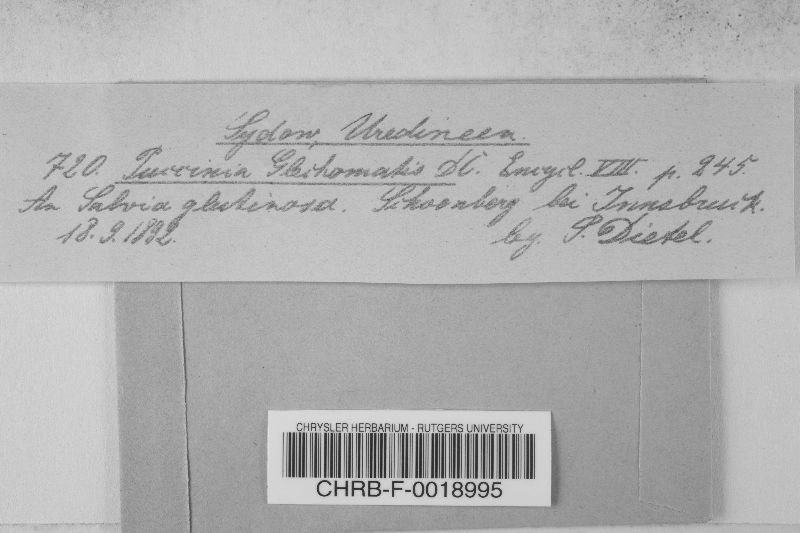 Sydow, Uredineen.
720. Puccinia Glechomatis DC. Encycl. VIII. p. 245.
An Salvia glutinosa. Schoenberg bei Innsbruck.
18.9.1892. leg. P. Dietel.
CHRYSLER HERBARIUM - RUTGERS UNIVERSITY
CHRB-F-0018995